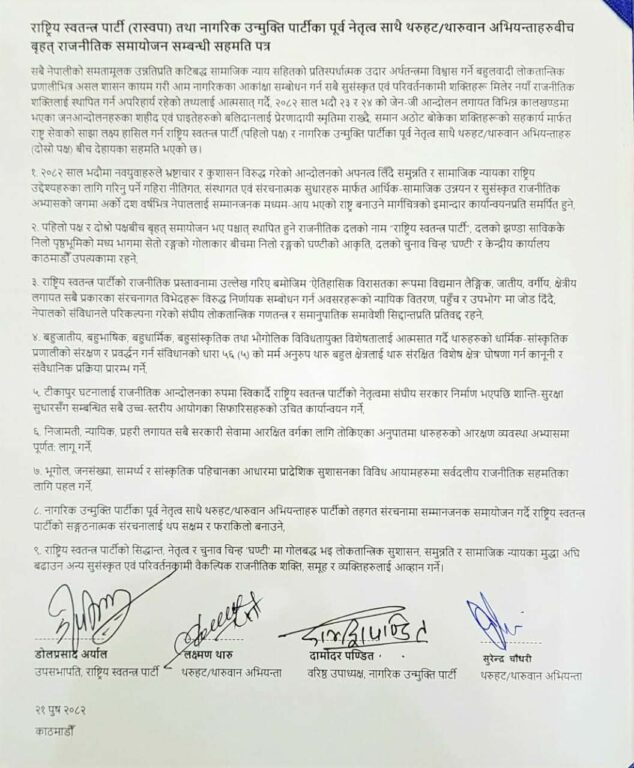 राष्ट्रिय स्वतन्त्र पार्टी (रास्वपा) तथा नागरिक उन्मुक्ति पार्टीका पूर्व नेतृत्व साथै थरुहट/थारुवान अभियन्ताहरुबीच
बृहत् राजनीतिक समायोजन सम्बन्धी सहमति पत्र
सबै नेपालीको समतामूलक उन्नतिप्रति कटिबद्ध सामाजिक न्याय सहितको प्रतिस्पर्धात्मक उदार अर्थतन्त्रमा विश्वास गर्ने बहुलवादी लोकतान्त्रिक
प्रणालीभित्र असल शासन कायम गरी आम नागरिकका आकांक्षा सम्बोधन गर्न सबै सुसंस्कृत एवं परिवर्तनकामी शक्तिहरू मिलेर नयाँ राजनीतिक
शक्तिलाई स्थापित गर्न अपरिहार्य रहेको तथ्यलाई आत्मसात् गर्दै, २०८२ साल भदौ २३ र २४ को जेन-जी आन्दोलन लगायत विभिन्न कालखण्डमा
भएका जनआन्दोलनहरुका शहीद एवं घाइतेहरुको बलिदानलाई प्रेरणादायी स्मृतिमा राख्दै, समान अठोट बोकेका शक्तिहरूको सहकार्य मार्फत
राष्ट्र सेवाको साझा लक्ष्य हासिल गर्न राष्ट्रिय स्वतन्त्र पार्टी (पहिलो पक्ष) र नागरिक उन्मुक्ति पार्टीका पूर्व नेतृत्व साथै थरुहट/थारुवान अभियन्ताहरु
(दोस्रो पक्ष) बीच देहायका सहमति भएको छ।
१. २०८२ साल भदौमा नवयुवाहरुले भ्रष्टाचार र कुशासन विरुद्ध गरेको आन्दोलनको अपनत्व लिँदै समुन्नति र सामाजिक न्यायका राष्ट्रिय
उद्देश्यहरुका लागि गरिनु पर्ने गहिरा नीतिगत, संस्थागत एवं संरचनात्मक सुधारहरु मार्फत आर्थिक-सामाजिक उन्नयन र सुसंस्कृत राजनीतिक
अभ्यासको जगमा अर्को दश वर्षभित्र नेपाललाई सम्मानजनक मध्यम-आय भएको राष्ट्र बनाउने मार्गचित्रको इमान्दार कार्यान्वयनप्रति समर्पित हुने,
२. पहिलो पक्ष र दोश्रो पक्षबीच बृहत् समायोजन भए पश्चात् स्थापित हुने राजनीतिक दलको नाम "राष्ट्रिय स्वतन्त्र पार्टी", दलको झण्डा साविककै
निलो पृष्ठभूमिको मध्य भागमा सेतो रङ्गको गोलाकार बीचमा निलो रङ्गको घण्टीको आकृति, दलको चुनाव चिन्ह 'घण्टी' र केन्द्रीय कार्यालय
काठमाडौँ उपत्यकामा रहने,
३. राष्ट्रिय स्वतन्त्र पार्टीको राजनीतिक प्रस्तावनामा उल्लेख गरिए बमोजिम 'ऐतिहासिक विरासतका रूपमा विद्यमान लैङ्गिक, जातीय, वर्गीय, क्षेत्रीय
लगायत सबै प्रकारका संरचनागत विभेदहरू विरुद्ध निर्णायक सम्बोधन गर्न अवसरहरूको न्यायिक वितरण, पहुँच र उपभोग' मा जोड दिँदै,
नेपालको संविधानले परिकल्पना गरेको संघीय लोकतान्त्रिक गणतन्त्र र समानुपातिक समावेशी सिद्धान्तप्रति प्रतिवद्ध रहने,
४. बहुजातीय, बहुभाषिक, बहुधार्मिक, बहुसांस्कृतिक तथा भौगोलिक विविधतायुक्त विशेषतालाई आत्मसात गर्दै थारुहरुको धार्मिक-सांस्कृतिक
प्रणालीको संरक्षण र प्रवर्द्धन गर्न संविधानको धारा ५६ (५) को मर्म अनुरुप थारु बहुल क्षेत्रलाई थारु संरक्षित 'विशेष क्षेत्र' घोषणा गर्न कानूनी र
संवैधानिक प्रक्रिया प्रारम्भ गर्ने,
५. टीकापुर घटनालाई राजनीतिक आन्दोलनका रुपमा स्विकार्दै राष्ट्रिय स्वतन्त्र पार्टीको नेतृत्वमा संघीय सरकार निर्माण भएपछि शान्ति-सुरक्षा
सुधारसँग सम्बन्धित सबै उच्च-स्तरीय आयोगका सिफारिसहरुको उचित कार्यान्वयन गर्ने,
६. निजामती, न्यायिक, प्रहरी लगायत सबै सरकारी सेवामा आरक्षित वर्गका लागि तोकिएका अनुपातमा थारुहरुको आरक्षण व्यवस्था अभ्यासमा
पूर्णत: लागू गर्ने,
७. भूगोल, जनसंख्या, सामर्थ्य र सांस्कृतिक पहिचानका आधारमा प्रादेशिक सुशासनका विविध आयामहरुमा सर्वदलीय राजनीतिक सहमतिका
लागि पहल गर्ने,
८. नागरिक उन्मुक्ति पार्टीका पूर्व नेतृत्व साथै थरुहट/थारुवान अभियन्ताहरु पार्टीको तहगत संरचनामा सम्मानजनक समायोजन गर्दै राष्ट्रिय स्वतन्त्र
पार्टीको सङ्गठनात्मक संरचनालाई थप सक्षम र फराकिलो बनाउने,
९. राष्ट्रिय स्वतन्त्र पार्टीको सिद्धान्त, नेतृत्व र चुनाव चिन्ह 'घण्टी' मा गोलबद्ध भइ लोकतान्त्रिक सुशासन, समुन्नति र सामाजिक न्यायका मुद्धा अघि
बढाउन अन्य सुसंस्कृत एवं परिवर्तनकामी वैकल्पिक राजनीतिक शक्ति, समूह र व्यक्तिहरुलाई आव्हान गर्ने।
दामोदर पण्डित
डोलप्रसाद अर्याल लक्ष्मण थारु दामोदर पण्डित सुरेन्द्र चौधरी
उपसभापति, राष्ट्रिय स्वतन्त्र पार्टी थरुहट/थारुवान अभियन्ता वरिष्ठ उपाध्यक्ष, नागरिक उन्मुक्ति पार्टी थरुहट/थारुवान अभियन्ता
२१ पुष २०८२
काठमाडौँ